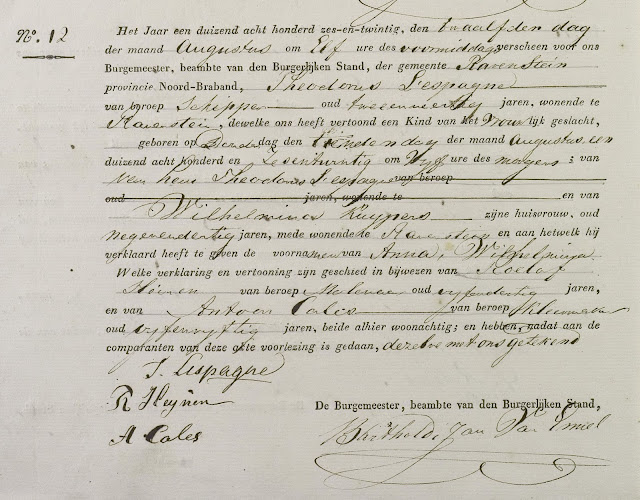 No. 12
Het Jaar een duizend acht honderd zes-en-twintig, den twaalfden dag
der maand Augustus om Elf ure des voormiddag verscheen voor ons
Burgemeester, beambte van den Burgerlijken Stand, der gemeente Ravenstein
provincie Noord-Braband, Theodorus Lespagne
van beroep Schipper oud tweeenveertig jaren, wonende te
Ravenstein, dewelke ons heeft vertoond een Kind van het Vrouwlijk geslacht,
geboren op Donderdag den tienden dag der maand Augustus een
duizend acht honderd en Zesentwintig om Vyf ure des morgens; van
hem Theodorus Lespagne van beroep
oud jaren, wonende te en van
Wilhelmina Kuijpers zijne huisvrouw, oud
negenendertig jaren, mede wonende te Ravenstein en aan hetwelk hij
verklaard heeft te geven de voornamen van Anna, Wilhelmina
Welke verklaring en vertooning zijn geschied in bijwezen van Roelof
Heinen van beroep Molenaar oud vyfendertig jaren,
en van Antoon Cales van beroep Kleermaker
oud vyfenvyftig jaren, beide alhier woonachtig; en hebben, nadat aan de
comparanten van deze akte voorlezing is gedaan, dezelve met ons getekend
T. Lespagne
R Heijnen
A Cales
De Burgemeester, beambte van den Burgerlijken Stand,
Jan